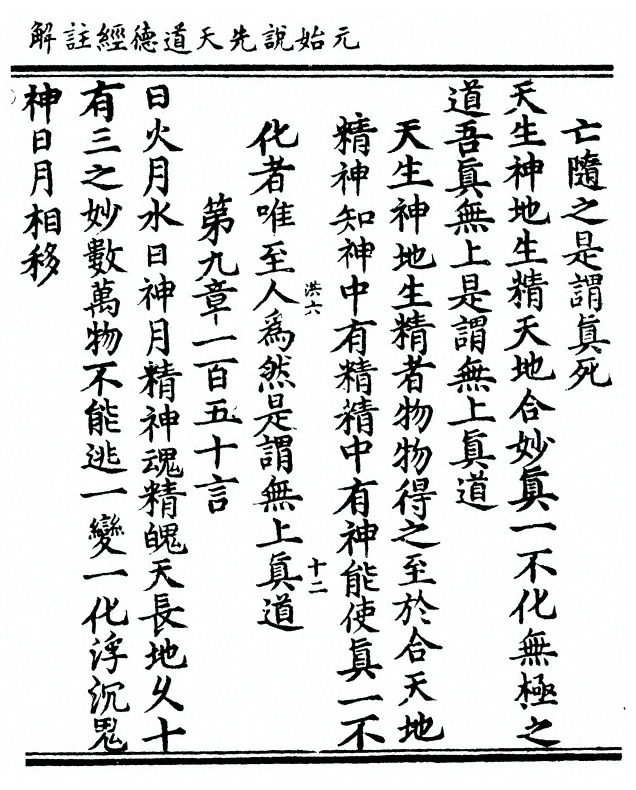 元始說先天道德經註解
亡隨之是謂眞死
天生神地生精天地合妙眞一不化無極之
道吾眞無上是謂無上眞道
天生神地生精者物物得之至於合天地
精神知神中有精精中有神能使眞一不
洪六
十二
化者唯至人爲然是謂無上眞道
第九章一百五十言
日火月水日神月精神魂精魄天長地久十
有三之妙數萬物不能逃一變一化浮沉鬼
神日月相移